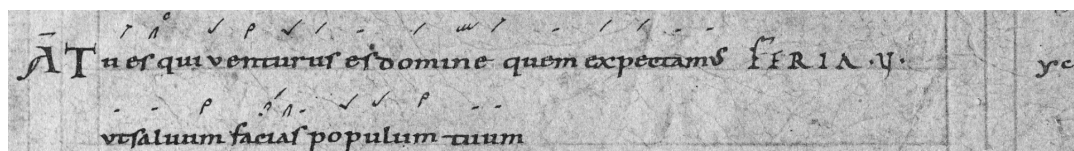 Ā Tu es qui venturus es domine quem expectamus FERIA .V.
ut saluum facias populum tuum